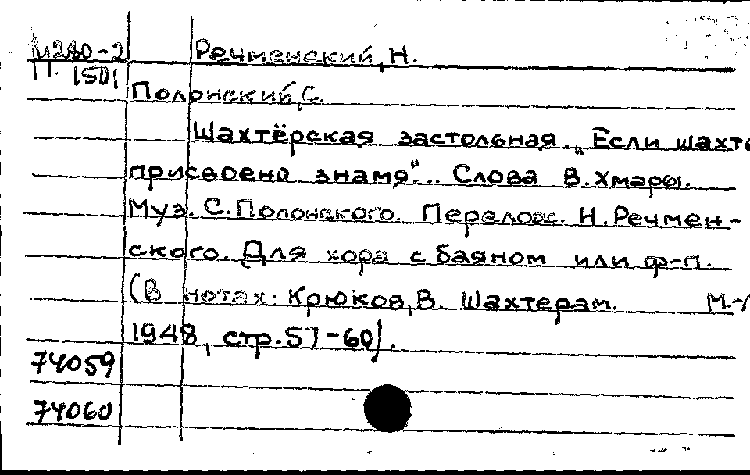 М280-2 Речменский, Н.
П. 1501
Полонский, С.
Шахтёрская застольная. „Если шахтё
присвоено знамя"... Слова В. Хмары.
Муз. С. Полонского. Перелож. Н. Речмен-
ского. Для хора с баяном или ф-п.
(В нотах: Крюков, В. Шахтерам. М.-Л
1948, стр. 57-60).
74059
74060